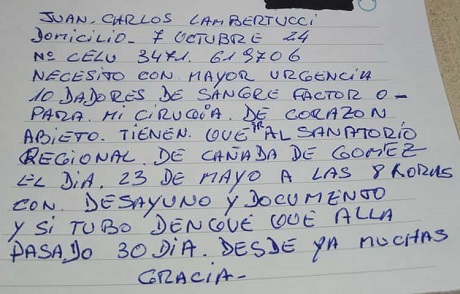 JUAN. CARLOS LAMBERTUCCI
Domicilio. 7 OCTUBRE 24
Nº CELU 3471. 619706
NECESITO CON MAYOR URGENCIA
10 DADORES DE SANGRE FACTOR O-
PARA. MI CIRUGIA. DE CORAZON
ABIETO. TIENEN. QUE IR AL SANATORIO
REGIONAL. DE CAÑADA DE GOMEZ
EL DIA. 23 DE MAYO A LAS 8 HORAS
CON. DESAYUNO Y DOCUMENTO
Y SI TUBO DENGUE QUE ALLA
PASADO 30 DIA. DESDE YA MUCHAS
GRACIA-